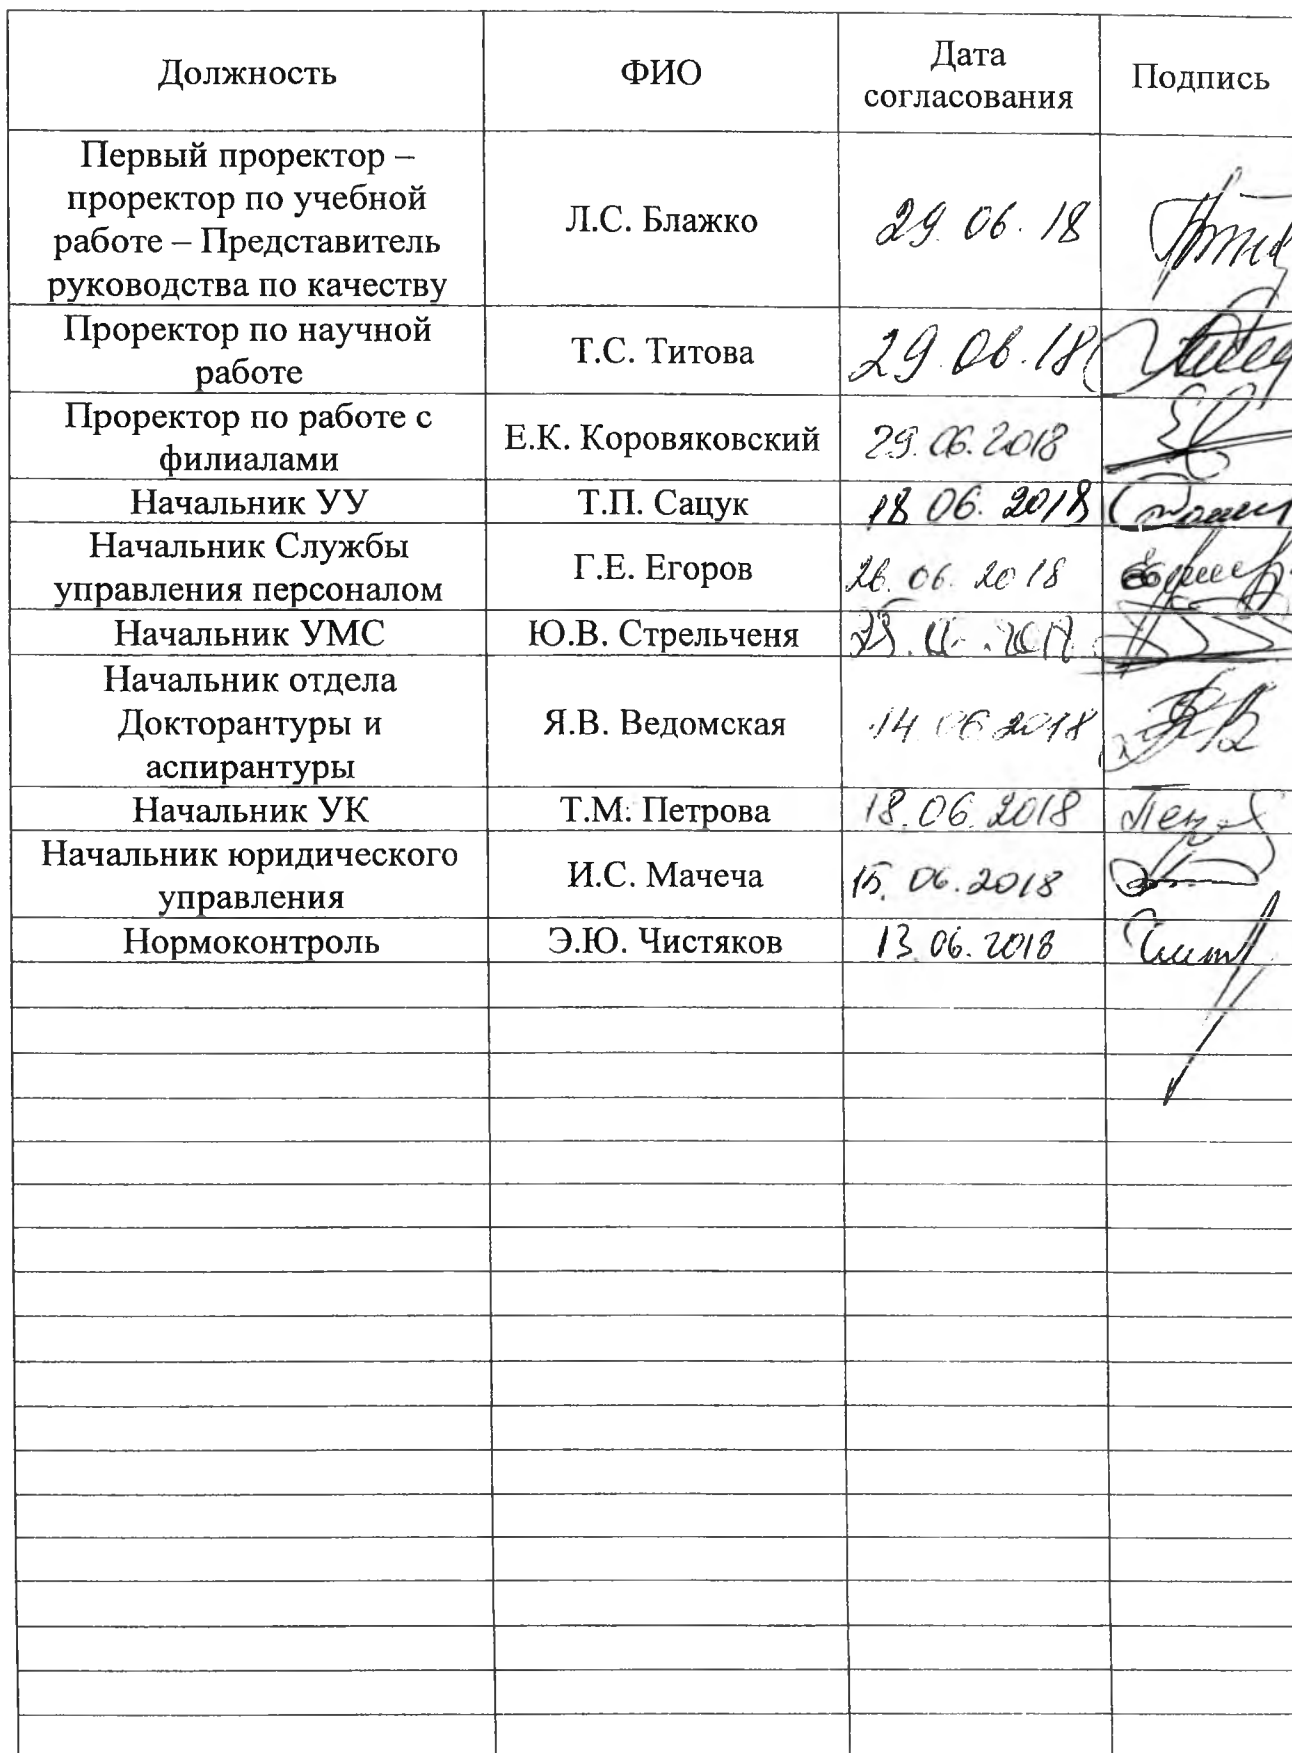 Должность ФИО Дата согласования Подпись
Первый проректор –
проректор по учебной
работе – Представитель
руководства по качеству
Л.С. Блажко 29.06.18
Проректор по научной
работе
Т.С. Титова 29.06.18
Проректор по работе с
филиалами
Е.К. Коровяковский 29.06.2018
Начальник УУ Т.П. Сацук 18.06.2018
Начальник Службы
управления персоналом
Г.Е. Егоров 26.06.2018
Начальник УМС Ю.В. Стрельченя
Начальник отдела
Докторантуры и
аспирантуры
Я.В. Ведомская 14.06.2018
Начальник УК Т.М. Петрова 18.06.2018
Начальник юридического
управления
И.С. Мачеча 15.06.2018
Нормоконтроль Э.Ю. Чистяков 13.06.2018